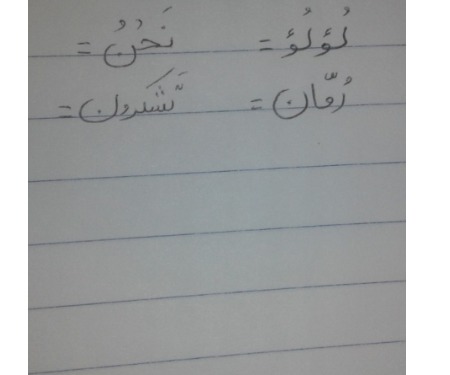 لُؤلُؤ = نَحْنُ =
رُمّان = تَشكرون =